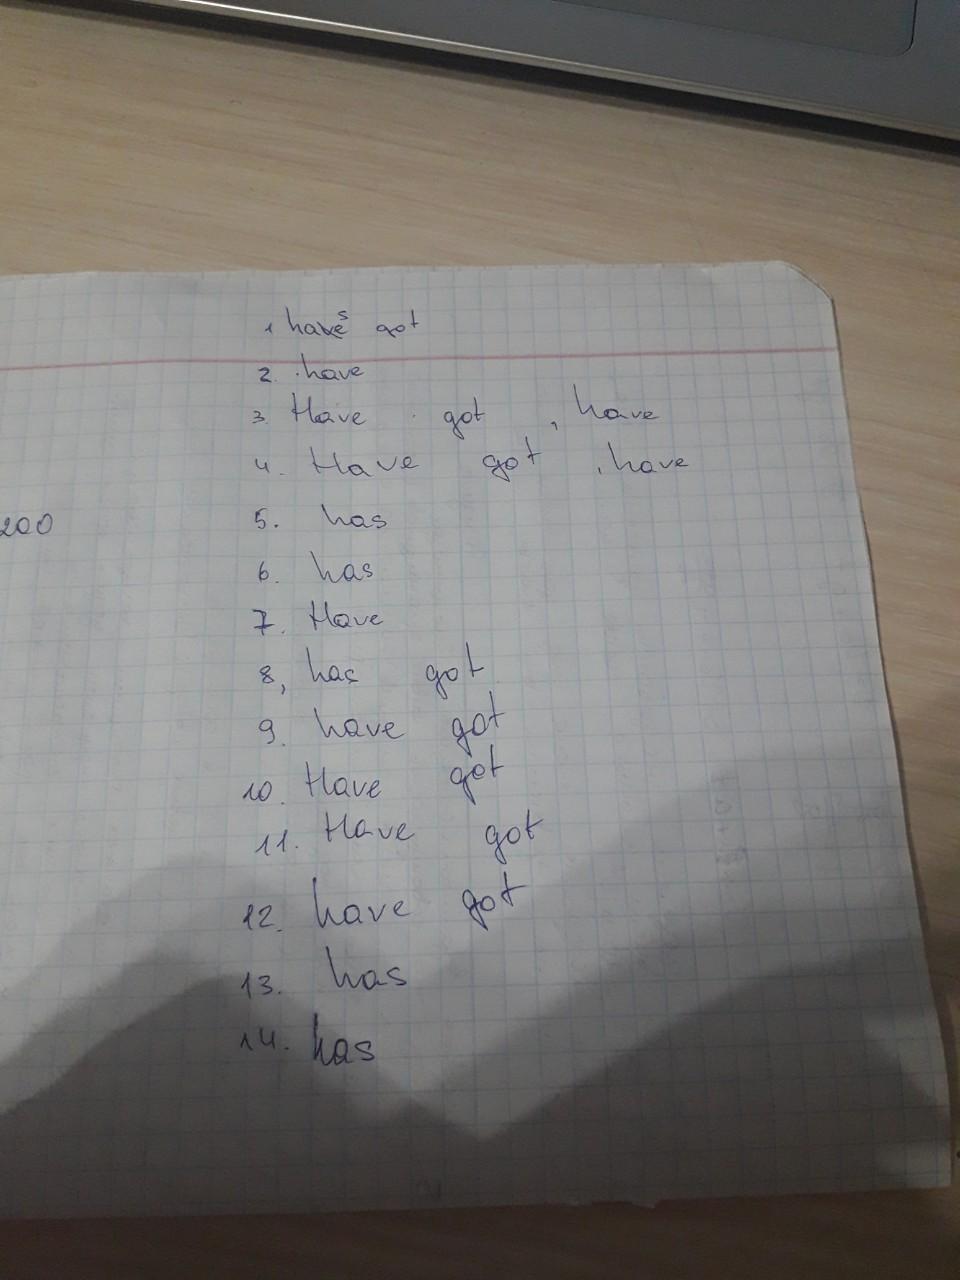 1 haves got
2. have
3. Have got , have
4. Have got , have
200
5. has
6. has
7. Have
8, has got
9. have got
10. Have got
11. Have got
12. have got
13. has
14. has